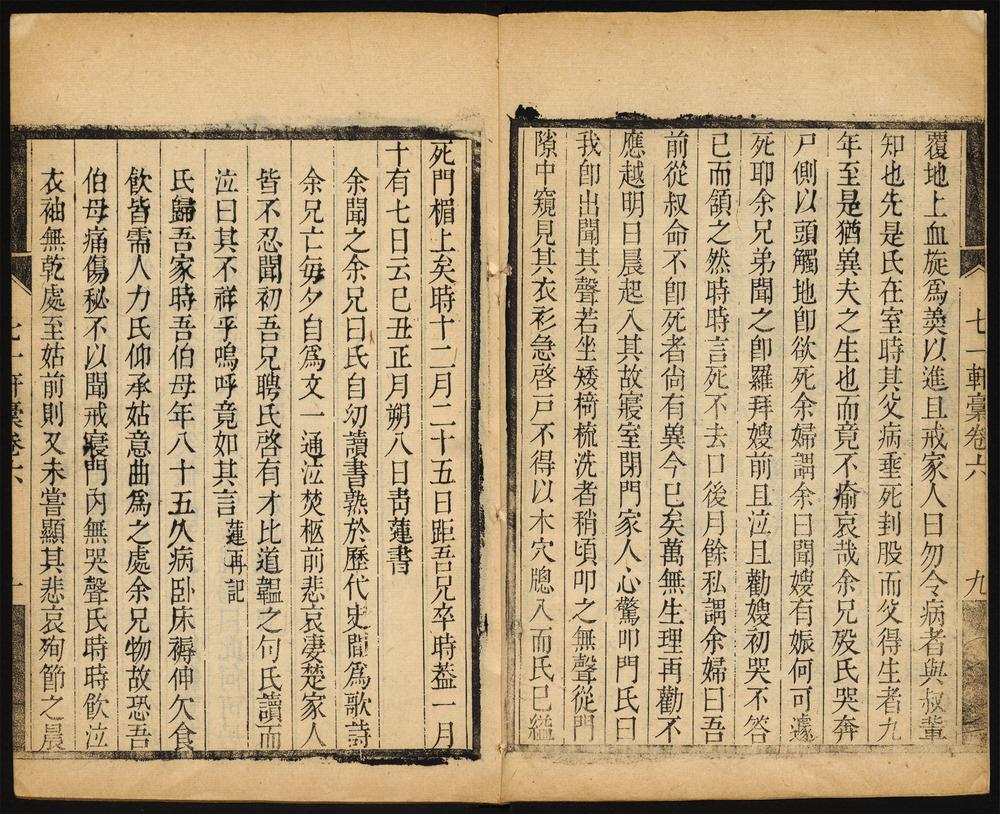 七一軒稾卷六
九
覆地上血旋爲羮以進且戒家人曰勿令病者與叔輩
知也先是氏在室時其父病垂死刲股而父得生者九
年至是猶兾夫之生也而竟不瘉哀哉余兄歿氏哭奔
戸側以頭觸地卽欲死余婦謂余曰聞嫂有娠何可遽
死耶余兄弟聞之卽羅拜嫂前且泣且勸嫂初哭不答
已而頷之然時時言死不去口後月餘私謂余婦曰吾
前從叔命不卽死者尙有兾今已矣萬無生理再勸不
應越明日晨起入其故寢室閉門家人心驚叩門氏曰
我卽出聞其聲若坐矮椅梳洗者稍頃叩之無聲從門
隙中窺見其衣衫急啓戸不得以木穴牕入而氏已縊
死門楣上矣時十二月二十五日距吾兄卒時葢一月
十有七日云己丑正月朔八日靑蓮書
余聞之余兄曰氏自幼讀書熟於歷代史閒爲歌詩
余兄亡每夕自爲文一通泣焚柩前悲哀凄楚家人
皆不忍聞初吾兄聘氏啓有才比道韞之句氏讀而
泣曰其不祥乎嗚呼竟如其言 蓮再記
氏歸吾家時吾伯母年八十五久病卧床褥伸欠食
飲皆需人力氏仰承姑意曲爲之處余兄物故恐吾
伯母痛傷秘不以聞戒寢門內無哭聲氏時時飲泣
衣袖無乾處至姑前則又未嘗顯其悲哀殉節之晨
七一軒稾卷六
十